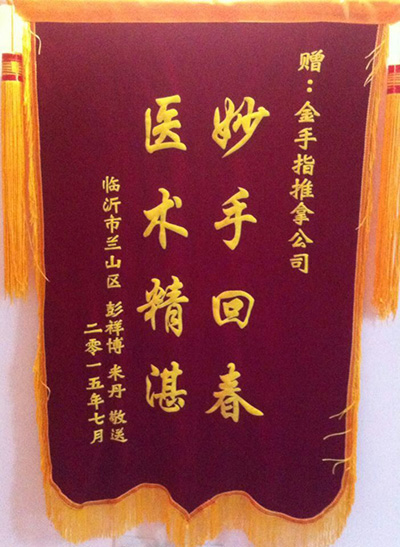 赠：金手指推拿公司
妙手回春
医术精湛
临沂市兰山区 彭祥博 米丹 敬送
二零一五年七月